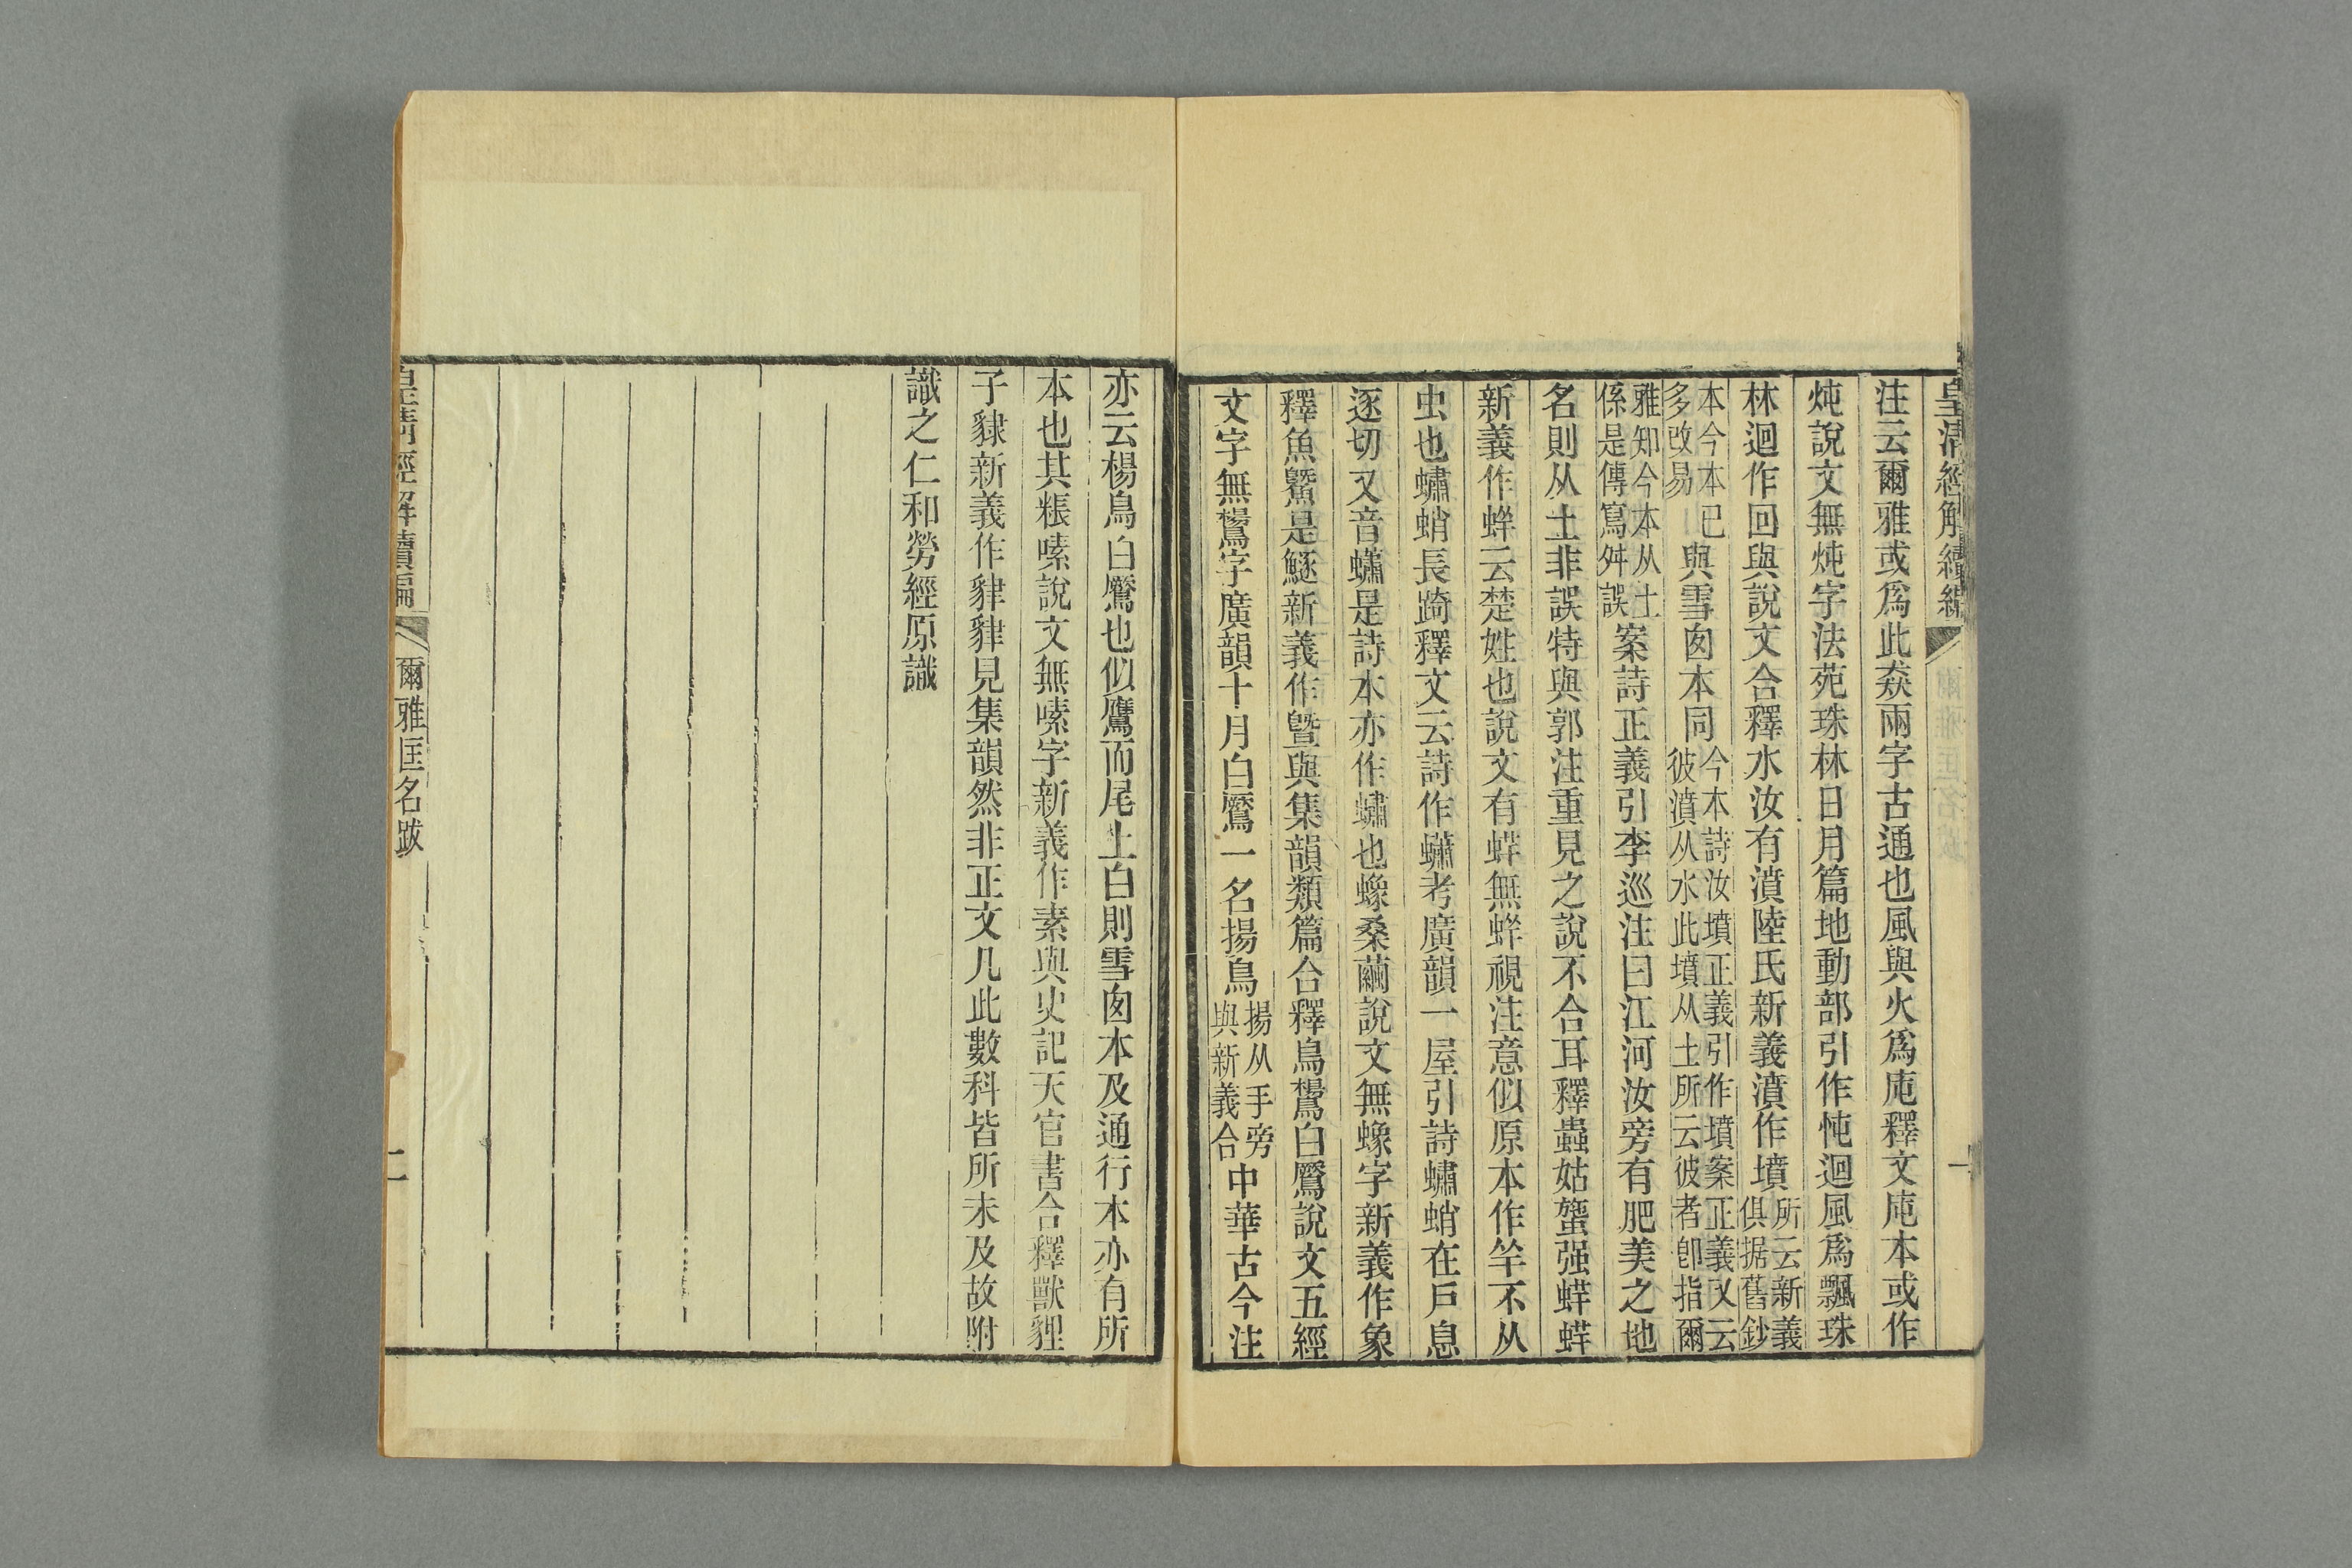 皇清經解續編
一
注云爾雅或爲此猋兩字古通也風與火爲庉釋文庉本或作
炖說文無炖字法苑珠林日月篇地動部引作忳迴風爲飄珠
林迴作回與說文合釋水汝有濆陸氏新義濆作墳所云新義俱据舊鈔
本今本已多改易與雪囱本同今本詩汝墳正義引作墳案正義又云彼濆从水此墳从土所云彼者卽指爾
雅知今本从土係是傳寫舛誤案詩正義引李巡注曰江河汝旁有肥美之地
名則从土非誤特與郭注重見之說不合耳釋蟲姑𧒒强蛘蛘
新義作蝆云楚姓也說文有蛘無蝆視注意似原本作羋不从
虫也蠨蛸長踦釋文云詩作蠨考廣韻一屋引詩蠨蛸在戶息
逐切又音蠨是詩本亦作蠨也蟓桑繭說文無蟓字新義作象
釋魚鱀是鱁新義作暨與集韻類篇合釋鳥鸉白鷢說文五經
文字無鸉字廣韻十月白鷢一名揚鳥揚从手旁與新義合中華古今注
亦云楊鳥白鷢也似鷹而尾上白則雪囱本及通行本亦有所
本也其粻嗉說文無嗉字新義作素與史記天官書合釋獸貍
子貄新義作肂肂見集韻然非正文凡此數科皆所未及故附
識之仁和勞經原識
皇清經解續編
爾雅匡名跋
二